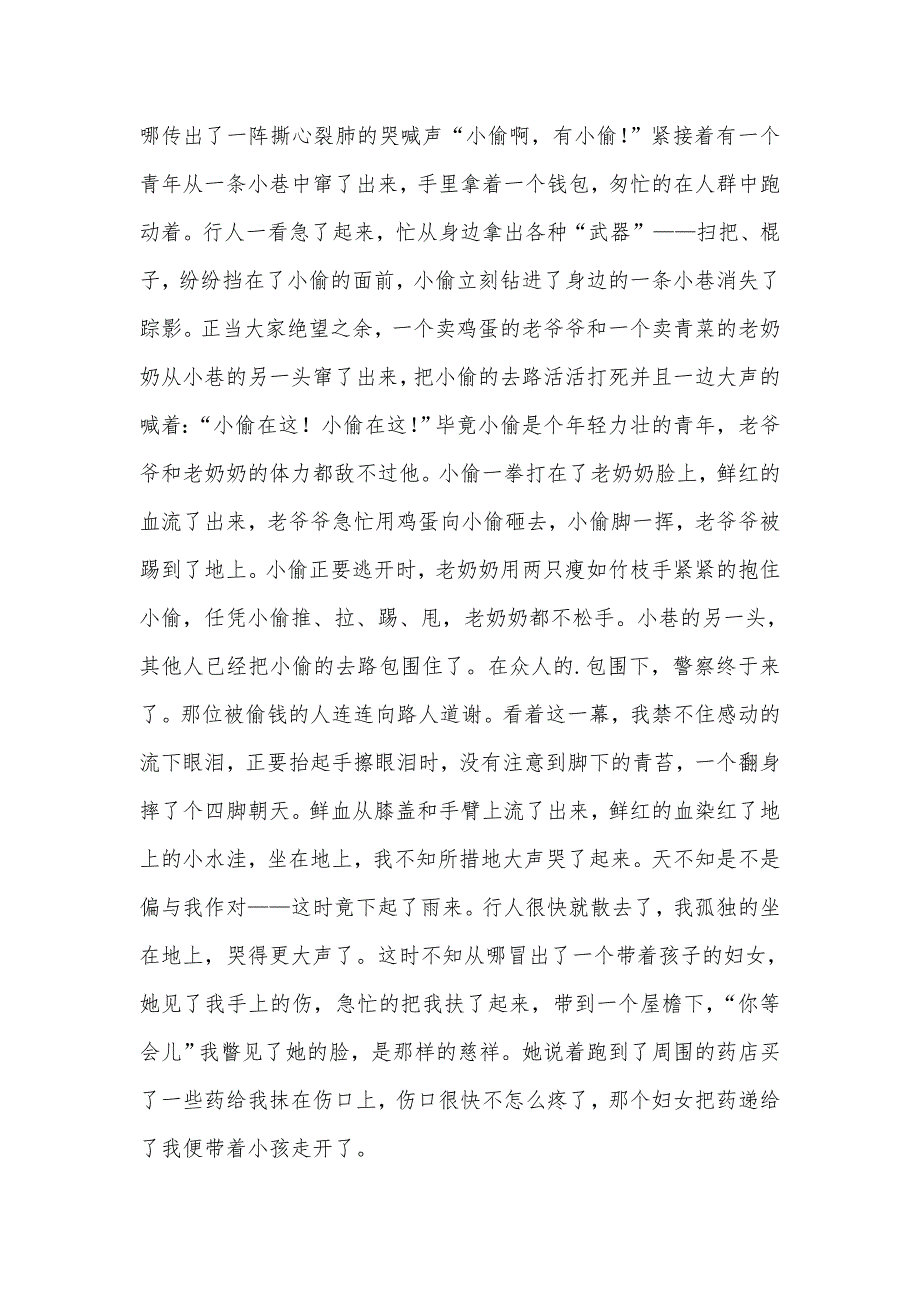 哪传出了一阵撕心裂肺的哭喊声“小偷啊，有小偷！”紧接着有一个
青年从一条小巷中窜了出来，手里拿着一个钱包，匆忙的在人群中跑
动着。行人一看急了起来，忙从身边拿出各种“武器”——扫把、棍
子，纷纷挡在了小偷的面前，小偷立刻钻进了身边的一条小巷消失了
踪影。正当大家绝望之余，一个卖鸡蛋的老爷爷和一个卖青菜的老奶
奶从小巷的另一头窜了出来，把小偷的去路活活打死并且一边大声的
喊着：“小偷在这！小偷在这！”毕竟小偷是个年轻力壮的青年，老爷
爷和老奶奶的体力都敌不过他。小偷一拳打在了老奶奶脸上，鲜红的
血流了出来，老爷爷急忙用鸡蛋向小偷砸去，小偷脚一挥，老爷爷被
踢到了地上。小偷正要逃开时，老奶奶用两只瘦如竹枝手紧紧的抱住
小偷，任凭小偷推、拉、踢、甩，老奶奶都不松手。小巷的另一头，
其他人已经把小偷的去路包围住了。在众人的.包围下，警察终于来
了。那位被偷钱的人连连向路人道谢。看着这一幕，我禁不住感动的
流下眼泪，正要抬起手擦眼泪时，没有注意到脚下的青苔，一个翻身
摔了个四脚朝天。鲜血从膝盖和手臂上流了出来，鲜红的血染红了地
上的小水洼，坐在地上，我不知所措地大声哭了起来。天不知是不是
偏与我作对——这时竟下起了雨来。行人很快就散去了，我孤独的坐
在地上，哭得更大声了。这时不知从哪冒出了一个带着孩子的妇女，
她见了我手上的伤，急忙的把我扶了起来，带到一个屋檐下，“你等
会儿”我瞥见了她的脸，是那样的慈祥。她说着跑到了周围的药店买
了一些药给我抹在伤口上，伤口很快不怎么疼了，那个妇女把药递给
了我便带着小孩走开了。